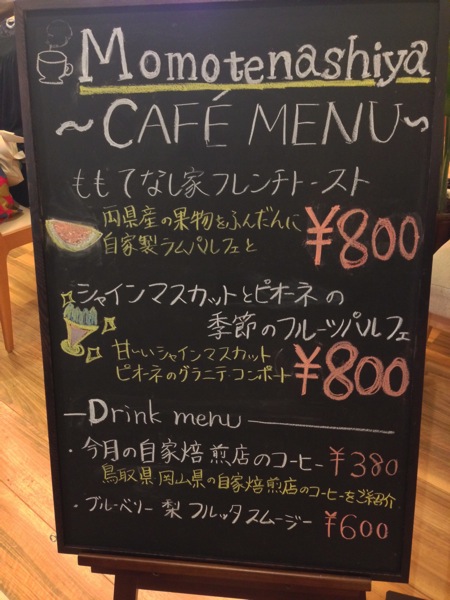 Momotenashiya
～CAFÉ MENU～
ももてなし家フレンチトースト
両県産の果物をふんだんに
自家製ラムパルフェと
¥800
シャインマスカットとピオーネの
季節のフルーツパルフェ
甘〜いシャインマスカット
ピオーネのグラニテコンポート
¥800
Drink menu
・今月の自家焙煎店のコーヒー ¥380
鳥取県岡山県の自家焙煎店のコーヒーをご紹介
・ブルーベリー梨フルッタスムージー ¥600